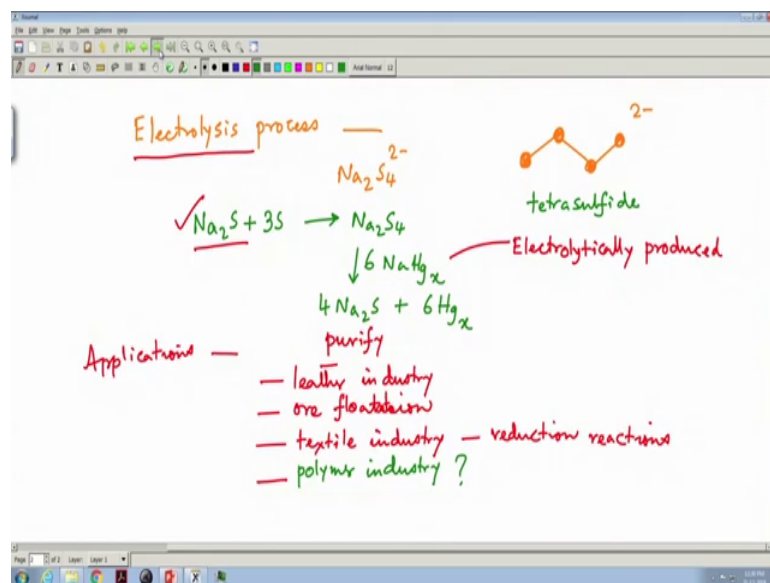 Journal
File Edit View Page Tools Options Help
Arial Normal 12
Electrolysis process —
Na2S4 2-
2-
tetrasulfide
Na2S + 3S → Na2S4
↓ 6 NaHgx
Electrolytically produced
4 Na2S + 6 Hgx
purify
Applications —
— leather industry
— ore floatation
— textile industry — reduction reactions
— polymer industry ?
Page 2 of 2 Layer: Layer 1